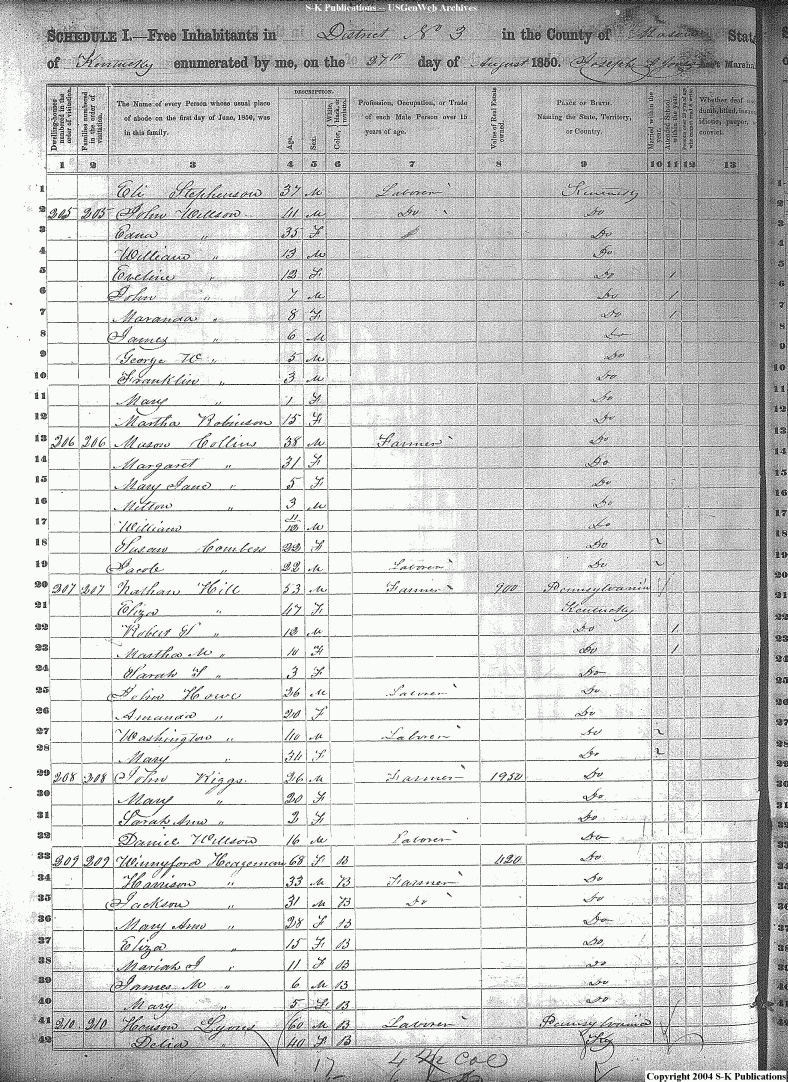 S-K Publications – USGenWeb Archives
SCHEDULE I.—Free Inhabitants in District No 3 in the County of Mason State
of Kentucky enumerated by me, on the 27th day of August 1850. Joseph Ass't Marshal
Dwelling-houses numbered in the order of visitation. Families numbered in the order of visitation. The Name of every Person whose usual place of abode on the first day of June, 1850, was in this family. DESCRIPTION. Age. Sex. Color, White, black, or mulatto. Profession, Occupation, or Trade of each Male Person over 15 years of age. Value of Real Estate owned. PLACE OF BIRTH. Naming the State, Territory, or Country. Married within the year. Attended School within the year. Whether deaf and dumb, blind, insane, idiotic, pauper, or convict.
1 2 3 4 5 6 7 8 9 10 11 12 13
1 Eli Stephenson 37 M Laborer Kentucky
2 205 205 John Willson 41 M Do Do
3 Edna " 35 F Do
4 William " 13 M Do
5 Eveline " 12 F Do 1
6 John " 7 M Do 1
7 Maranda " 8 F Do 1
8 James " 6 M Do
9 George W " 5 M Do
10 Franklin " 3 M Do
11 Mary " 1 F Do
12 Martha Robinson 15 F Do
13 206 206 Mason Collins 38 M Farmer Do
14 Margaret " 31 F Do
15 Mary Jane " 5 F Do
16 Milton " 3 M Do
17 William 11/12 M Do
18 Susan Combess 22 F Do
19 Jacob " 22 M Laborer Do
20 207 207 Nathan Hill 53 M Farmer 900 Pennsylvania /
21 Eliza " 47 F Kentucky
22 Robert " 12 M Do 1
23 Martha M " 10 F Do 1
24 Sarah F " 3 F Do
25 John Howe 26 M Laborer Do
26 Amanda " 20 F Do
27 Washington " 40 M Laborer Do
28 Mary " 34 F Do
29 208 208 John Riggs 26 M Farmer 1950 Do
30 Mary " 20 F Do
31 Sarah Ann " 2 F Do
32 Daniel Willson 16 M Laborer Do
33 209 209 Winnyford Hedgeman 68 F B 420 Do
34 Harrison " 33 M B Farmer Do
35 Jackson " 31 M B Do Do
36 Mary Ann " 28 F B Do
37 Eliza " 15 F B Do
38 Mariah J " 11 F B Do
39 James M " 6 M B Do
40 Mary " 5 F B Do
41 210 210 Henson Lyons 60 M B Laborer Pennsylvania
42 Delia " 40 F B Ky
17 4 Col
Copyright 2004 S-K Publications